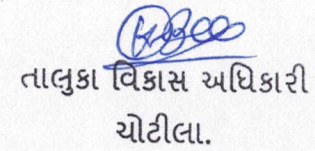 તાલુકા વિકાસ અધિકારી
ચોટીલા.